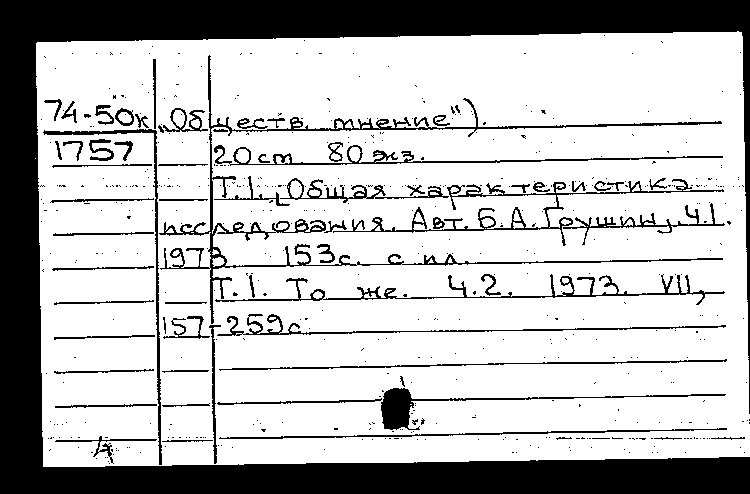 74-50к „Обществ. мнение").
1757 20 см. 80 экз.
Т.1. [Общая характеристика
исследования. Авт. Б.А. Грушин]. Ч.1.
1973. 153 с. с ил.
Т.1. То же. Ч.2. 1973. VII,
157-259 с.